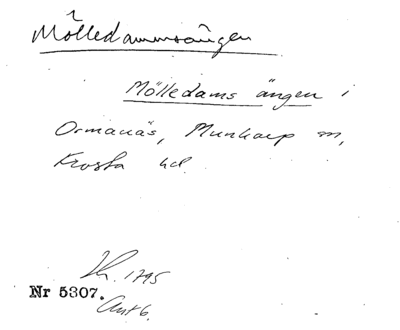 Mölledammsängen
Mölledams ängen i
Ormanäs, Munkarp sn,
Frosta hd.
Lk. 1795
Nr 5307.
Akt 6.